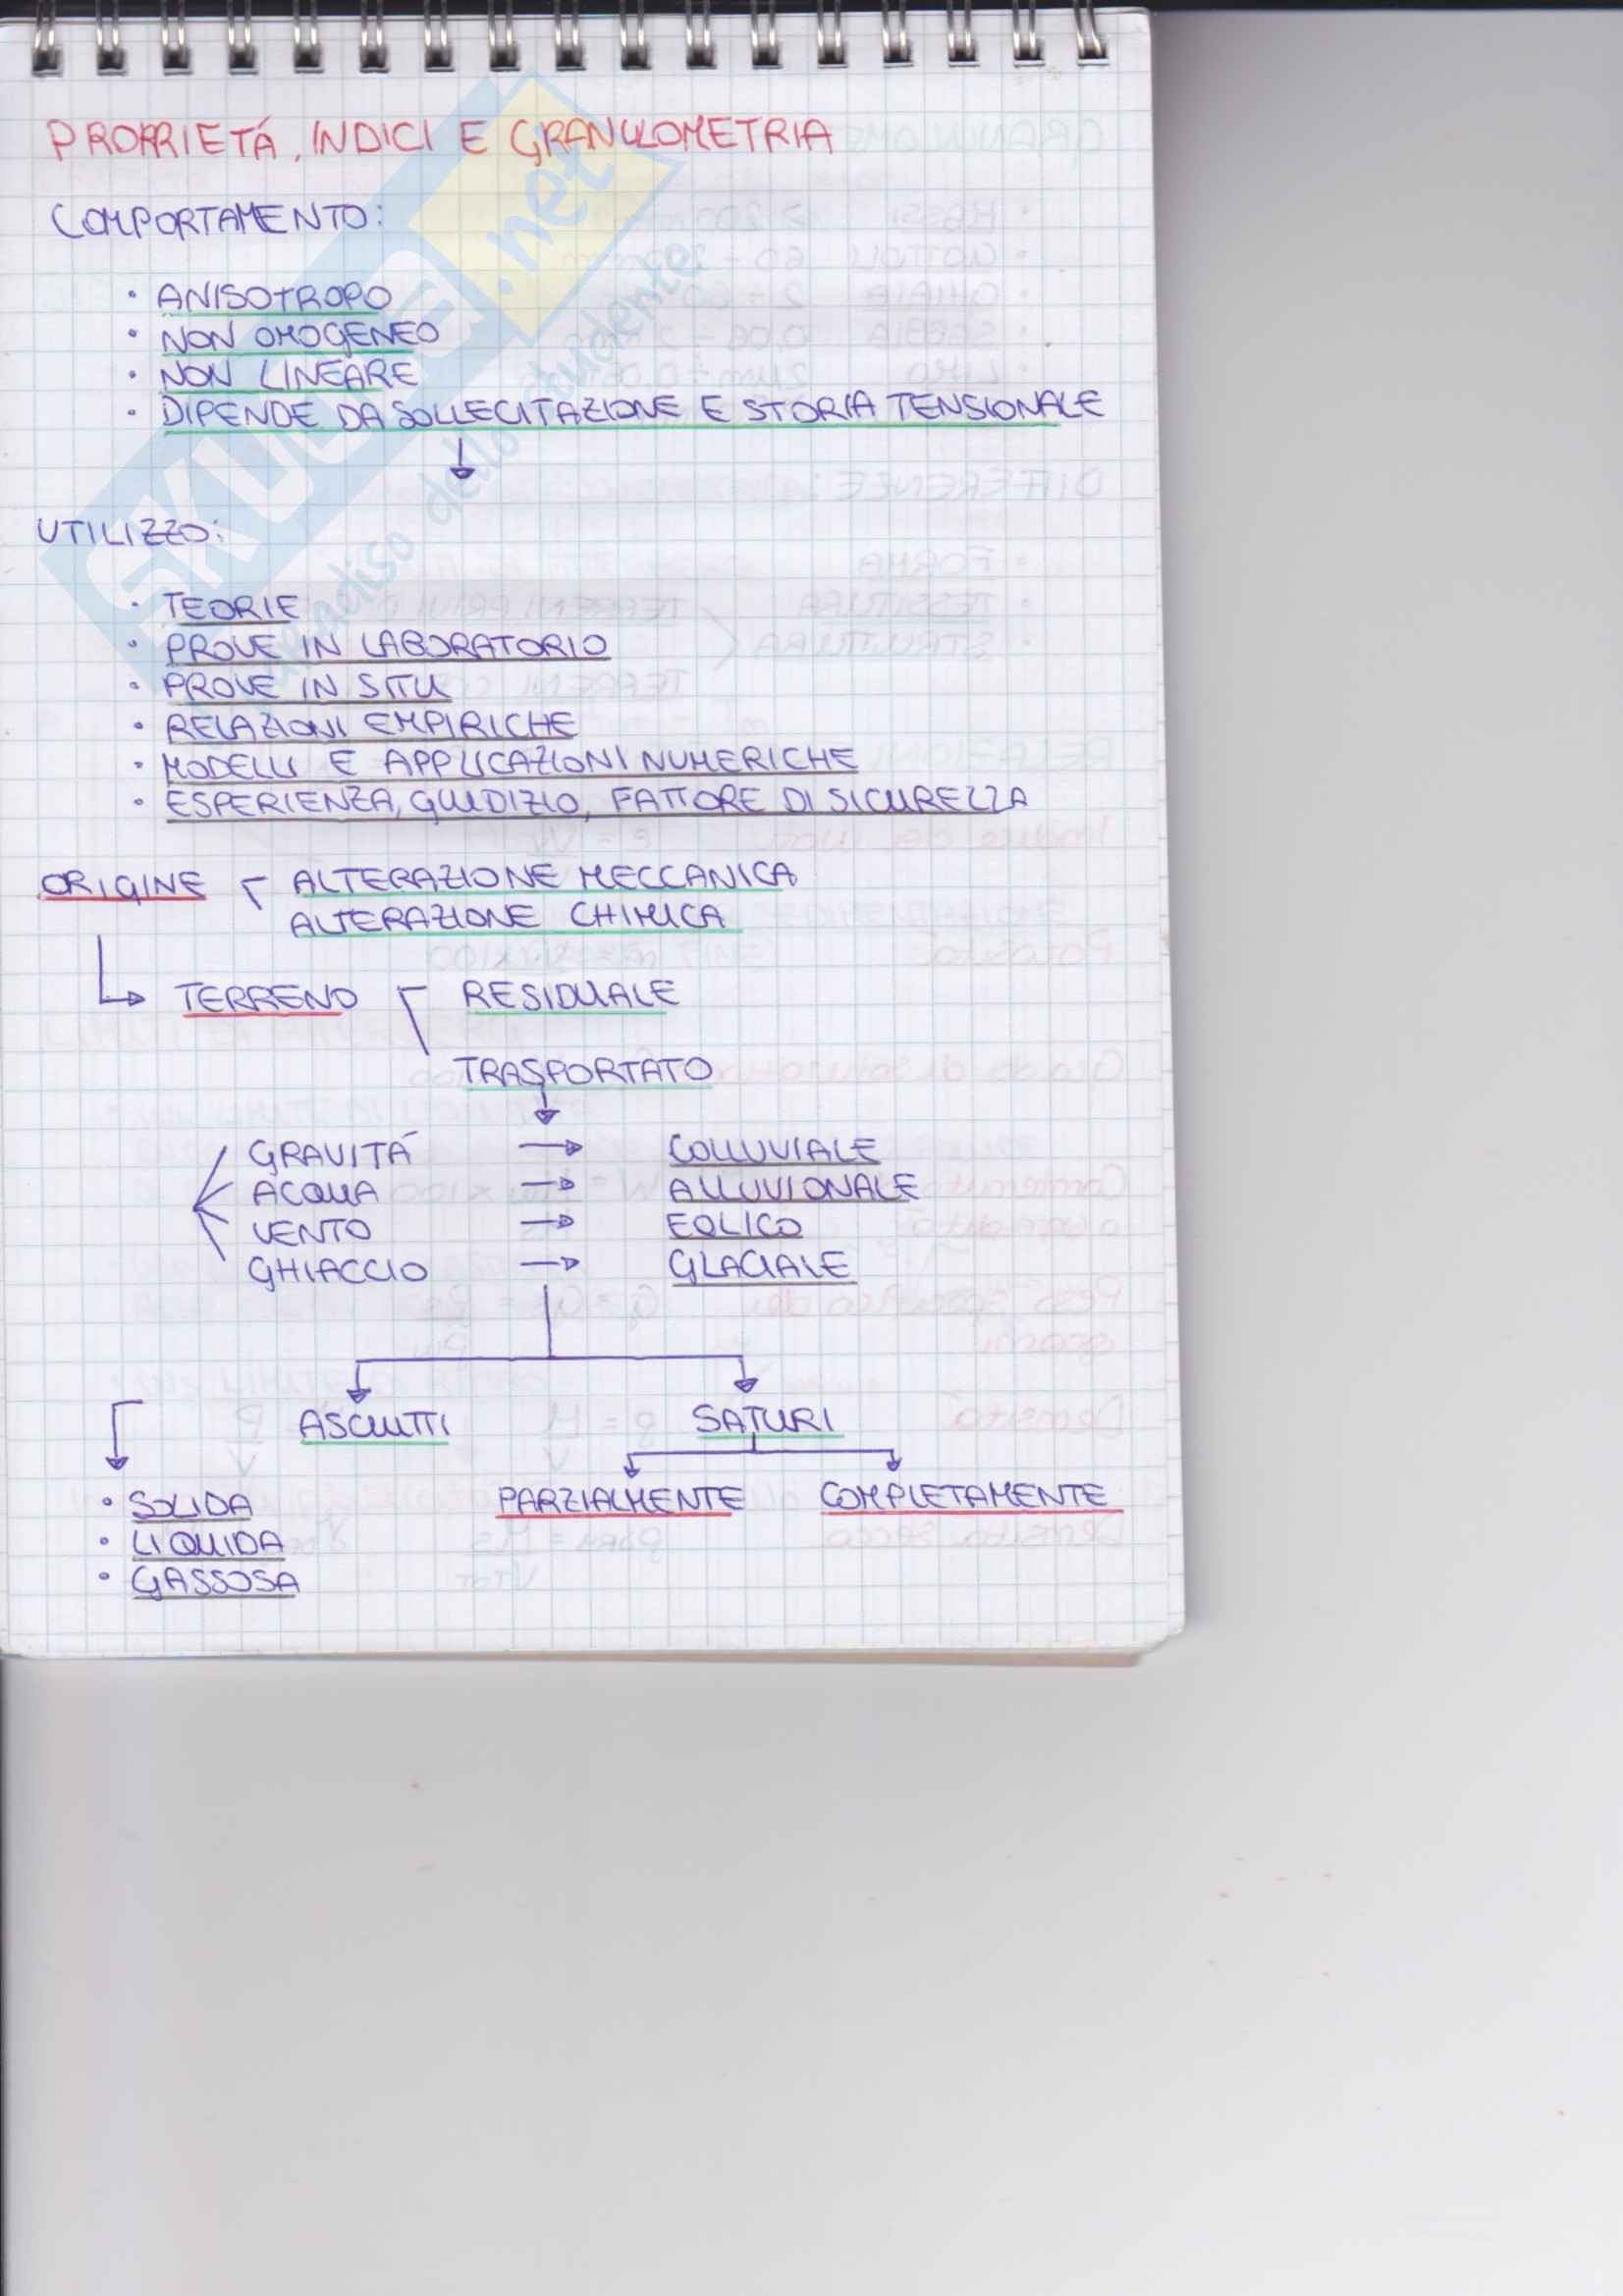 PROPRIETÁ, INDICI E GRANULOMETRIA
COMPORTAMENTO:
· ANISOTROPO
· NON OMOGENEO
· NON LINEARE
· DIPENDE DA SOLLECITAZIONE E STORIA TENSIONALE
↓
UTILIZZO:
· TEORIE
· PROVE IN LABORATORIO
· PROVE IN SITU
· RELAZIONI EMPIRICHE
· MODELLI E APPLICAZIONI NUMERICHE
· ESPERIENZA, GIUDIZIO, FATTORE DI SICUREZZA
ORIGINE ALTERAZIONE MECCANICA
ALTERAZIONE CHIMICA
TERRENO RESIDUALE
TRASPORTATO
GRAVITÁ → COLLUVIALE
ACQUA → ALLUVIONALE
VENTO → EOLICO
GHIACCIO → GLACIALE
ASCIUTTI SATURI
PARZIALMENTE COMPLETAMENTE
· SOLIDA
· LIQUIDA
· GASSOSA
SKUOLA.net
paradiso dello studente